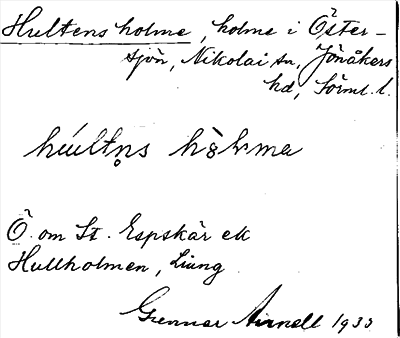 Hultens holme, holme i Öster-
sjön, Nikolai sn, Jönåkers
hd, Söml. l.
Ö. om St. Espskär ek
Hullholmen, Ljung
Gunnar Arnell 1933